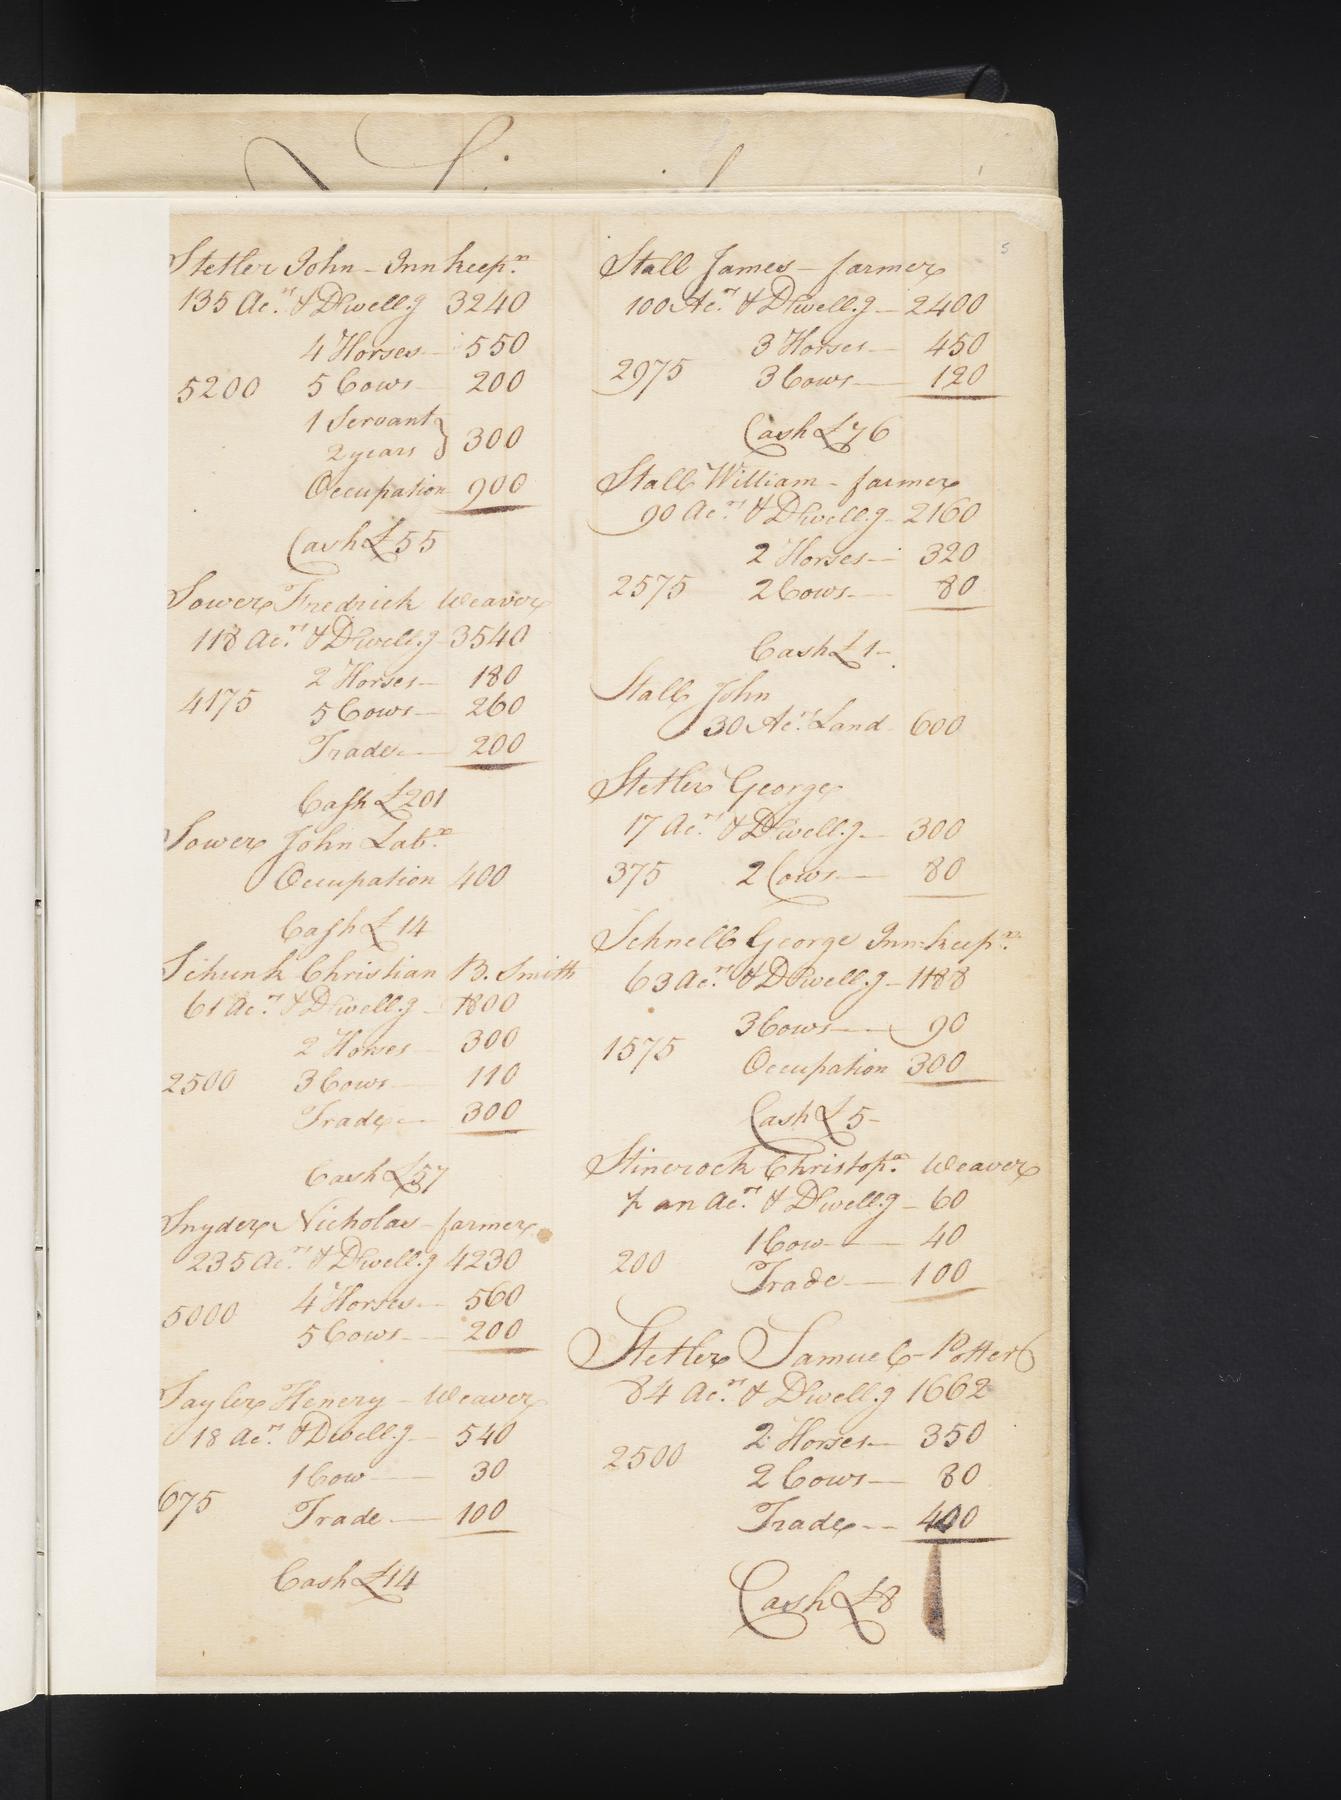 Stetler John - Innkeepr.
135 Acrs. & Dwell.g 3240
4 Horses - 550
5200 5 Cows 200
1 Servant
2 years } 300
Occupation 900
Cash £55
Sower Fredrick Weaver
118 Acrs. & Dwell.g 3540
2 Horses - 180
4175 5 Cows - 260
Trade - 200
Cash £201
Sower John Labr.
Occupation 400
Cash £14
Schunk Christian B. Smith
61 Acrs. & Dwell.g - 1800
2 Horses - 300
2500 3 Cows - 110
Trade - 300
Cash £57
Snyder Nicholas - farmer
235 Acrs. & Dwell.g 4230
5000 4 Horses - 560
5 Cows - 200
Sayler Henery - Weaver
18 Acrs. & Dwell.g - 540
1 Cow - 30
675 Trade - 100
Cash £14
5
Stall James - farmer
100 Acrs. & Dwell.g - 2400
3 Horses - 450
2975 3 Cows - 120
Cash £76
Stall William - farmer
90 Acrs. & Dwell.g - 2160
2 Horses - 320
2575 2 Cows - 80
Cash £1-
Stall John
30 Acrs. Land 600
Stetler George
17 Acrs. & Dwell.g - 300
375 2 Cows - 80
Schnell George Inn-keepr.
63 Acrs. & Dwell.g - 1188
3 Cows - 90
1575 Occupation 300
Cash £5-
Stincrock Christopr. Weaver
½ an Acr. & Dwell.g - 60
1 Cow - 40
200 Trade - 100
Stetler Samuel - Potter
84 Acrs. & Dwell.g 1662
2 Horses - 350
2500 2 Cows - 80
Trade - 400
Cash £8